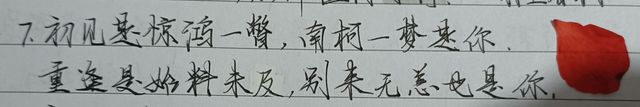 7.初见是惊鸿一瞥,南柯一梦是你.
重逢是始料未及,别来无恙也是你.